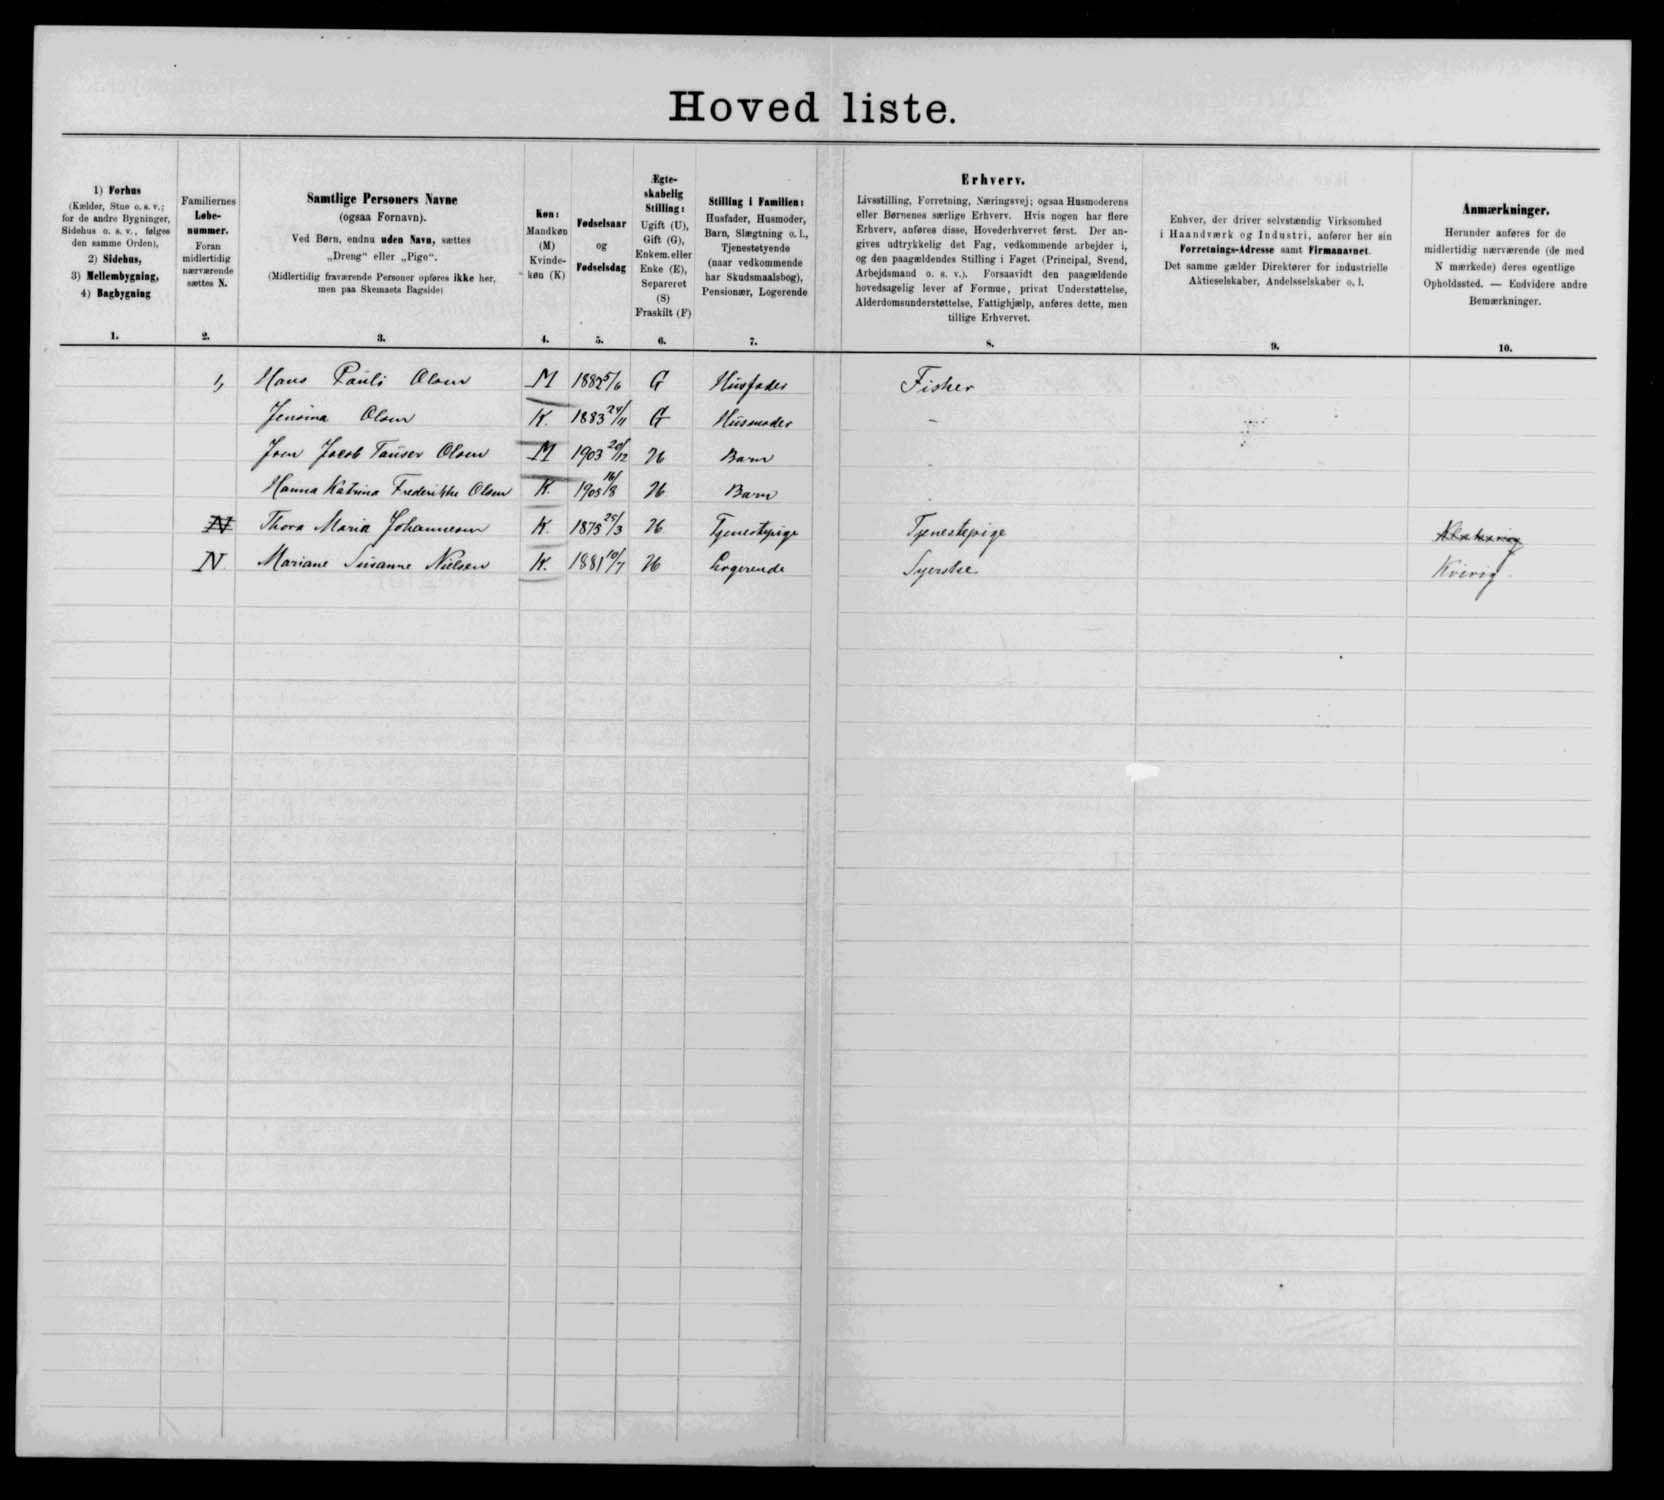 Hovedliste.
1) Forhus
(Kælder, Stue o. s. v.;
for de andre Bygninger,
Sidehus o. s. v., følges
den samme Orden),
2) Sidehus,
3) Mellembygning,
4) Bagbygning
1.
Familiernes
Løbe-
nummer.
Foran
midlertidig
nærværende
sættes N.
2.
Samtlige Personers Navne
(ogsaa Fornavn).
Ved Børn, endnu uden Navn, sættes
„Dreng“ eller „Pige“.
(Midlertidig fraværende Personer opføres ikke her,
men paa Skemaets Bagside)
3.
Køn:
Mandkøn
(M)
Kvinde-
køn (K)
4.
Fødselsaar
og
Fødselsdag
5.
Ægte-
skabelig
Stilling:
Ugift (U),
Gift (G),
Enkem. eller
Enke (E),
Separeret
(S)
Fraskilt (F)
6.
Stilling i Familien:
Husfader, Husmoder,
Barn, Slægtning o. l.,
Tjenestetyende
(naar vedkommende
har Skudsmaalsbog),
Pensionær, Logerende
7.
Erhverv.
Livsstilling, Forretning, Næringsvej; ogsaa Husmoderens
eller Børnenes særlige Erhverv. Hvis nogen har flere
Erhverv, anføres disse, Hovederhvervet først. Der an-
gives udtrykkelig det Fag, vedkommende arbejder i,
og den paagældendes Stilling i Faget (Principal, Svend,
Arbejdsmand o. s. v.). Forsaavidt den paagældende
hovedsagelig lever af Formue, privat Understøttelse,
Alderdomsunderstøttelse, Fattighjælp, anføres dette, men
tillige Erhvervet.
8.
Enhver, der driver selvstændig Virksomhed
i Haandværk og Industri, anfører her sin
Forretnings-Adresse samt Firmanavnet.
Det samme gælder Direktører for industrielle
Aktieselskaber, Andelsselskaber o. l.
9.
Anmærkninger.
Herunder anføres for de
midlertidig nærværende (de med
N mærkede) deres egentlige
Opholdssted. — Endvidere andre
Bemærkninger.
10.
1, Hans Pauli Olsen M 1882 5/6 G Husfader Fisker
Jensina Olsen K. 1883 G Husmoder -
Joen Jacob Tauser Olsen M 1903 20/12 U Barn
Hanna Katrina Frederikke Olsen K. 1905 16/8 U Barn
N Thora Maria Johannesen K. 1875 25/3 U Tjenestepige Tjenestepige
N. Mariane Susanne Nielsen K. 1881 10/7 U Logerende Syerske Kvivig